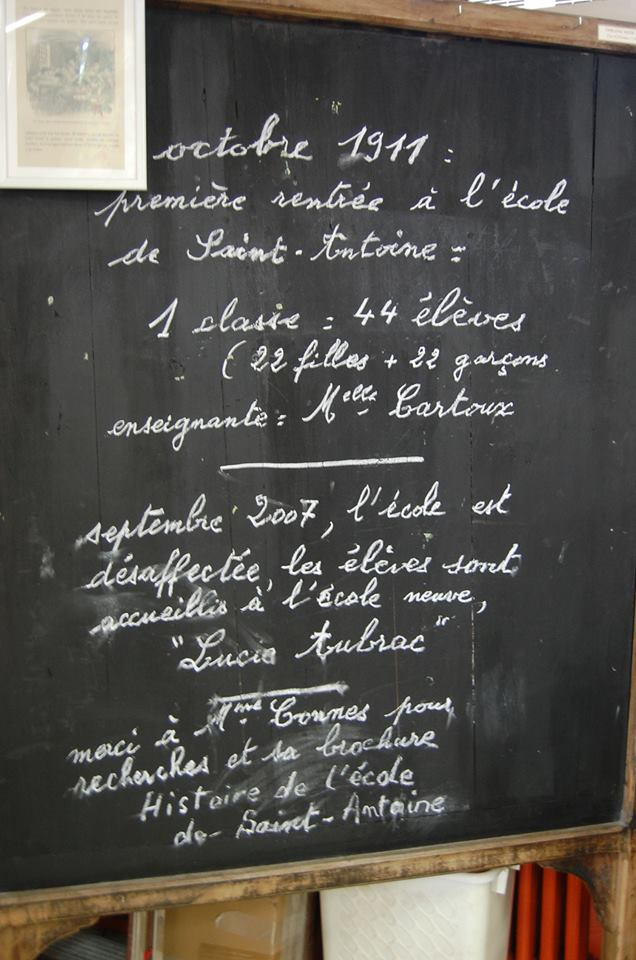 octobre 1911 :
première rentrée à l'école
de Saint-Antoine =
1 classe : 44 élèves
( 22 filles + 22 garçons
enseignante : Melle Cartoux
septembre 2007, l'école est
désaffectée, les élèves sont
accueillis à l'école neuve,
"Lucie Aubrac"
merci à Mme Connes pour
recherches et sa brochure
Histoire de l'école
de Saint-Antoine